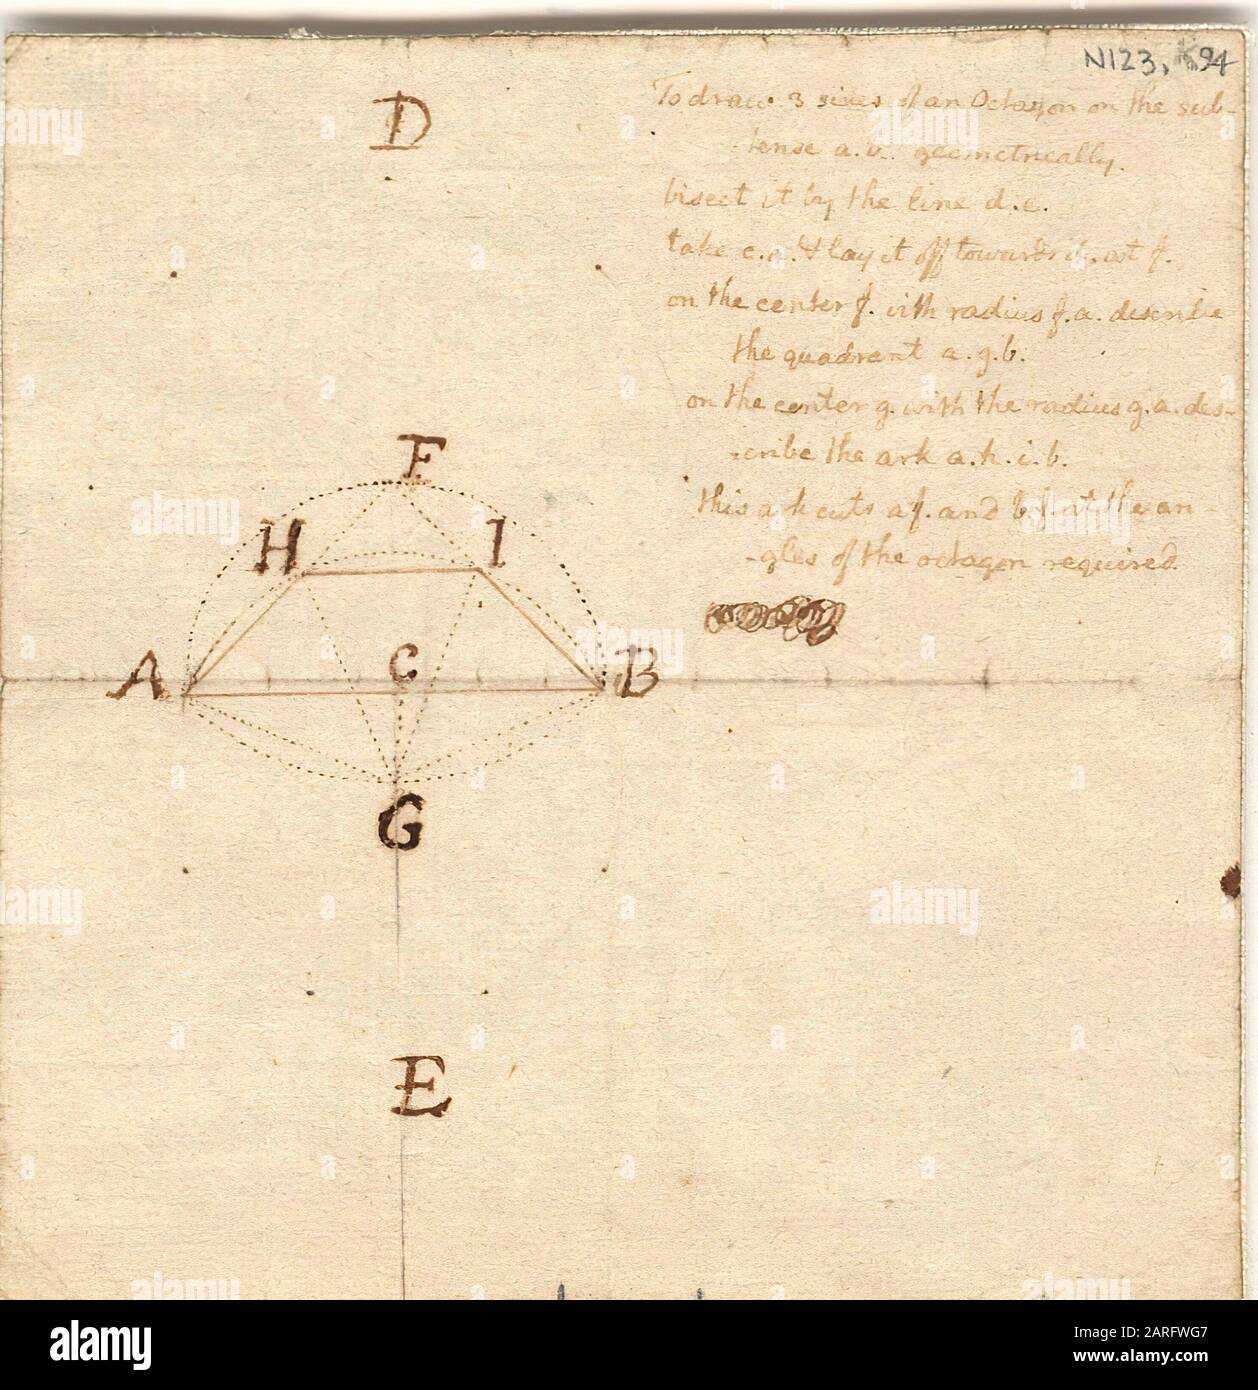 N123, K94
To draw 3 sides of an Octagon on the sub-
-tense a.b. geometrically.
bisect it by the line d.e.
take c.a. & lay it off towards d. at f.
on the center f. with radius f.a. describe
the quadrant a.g.b.
on the center g. with the radius g.a. des-
-cribe the ark a.h.i.b.
this ark cuts a f. and b f. at the an-
-gles of the octagon required.
D
F
H I
A C B
G
E
alamy
Image ID: 2ARFWG7
www.alamy.com